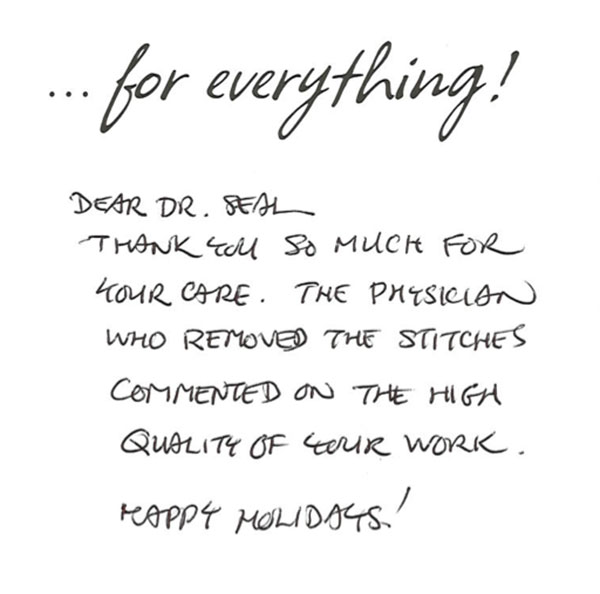 ... for everything!
DEAR DR. SEAL
THANK YOU SO MUCH FOR
YOUR CARE. THE PHYSICIAN
WHO REMOVED THE STITCHES
COMMENTED ON THE HIGH
QUALITY OF YOUR WORK.
HAPPY HOLIDAYS!